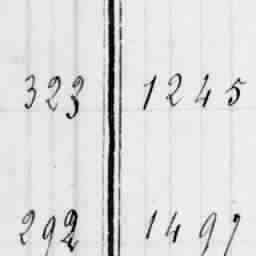 323 1245
292 1497